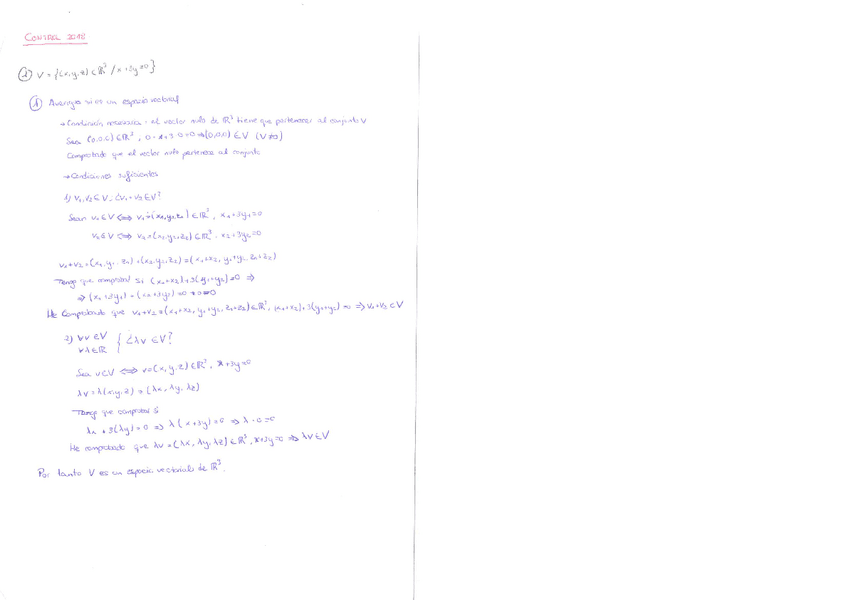 CONTROL 2018
1) V = {(x,y,z) ∈ ℝ³ / x+3y=0}
1) Averigua si es un espacio vectorial
→ Condición necesaria: el vector nulo de ℝ³ tiene que pertenecer al conjunto V
Sea (0,0,0) ∈ ℝ³, 0+3·0=0 ⇒ (0,0,0) ∈ V (V≠∅)
Comprobado que el vector nulo pertenece al conjunto
→ Condiciones suficientes
1) V₁,V₂ ∈ V ¿V₁+V₂ ∈ V?
Sean V₁ ∈ V ⟺ V₁=(x₁,y₁,z₁) ∈ ℝ³, x₁+3y₁=0
V₂ ∈ V ⟺ V₂=(x₂,y₂,z₂) ∈ ℝ³, x₂+3y₂=0
V₁+V₂=(x₁,y₁,z₁)+(x₂,y₂,z₂)=(x₁+x₂, y₁+y₂, z₁+z₂)
Tengo que comprobar si (x₁+x₂)+3(y₁+y₂)=0 ⇒
⇒ (x₁+3y₁)+(x₂+3y₂)=0
He Comprobado que V₁+V₂=(x₁+x₂, y₁+y₂, z₁+z₂) ∈ ℝ³, (x₁+x₂)+3(y₁+y₂)=0 ⇒ V₁+V₂ ∈ V
2) ∀v ∈ V { ¿λv ∈ V?
∀λ ∈ ℝ
Sea v ∈ V ⟺ v=(x,y,z) ∈ ℝ³, x+3y=0
λv=λ(x,y,z)=(λx, λy, λz)
Tengo que comprobar si
λx+3(λy)=0 ⇒ λ(x+3y)=0 ⇒ λ·0=0
He comprobado que λv=(λx, λy, λz) ∈ ℝ³, x+3y=0 ⇒ λv ∈ V
Por tanto V es un espacio vectorial de ℝ³.